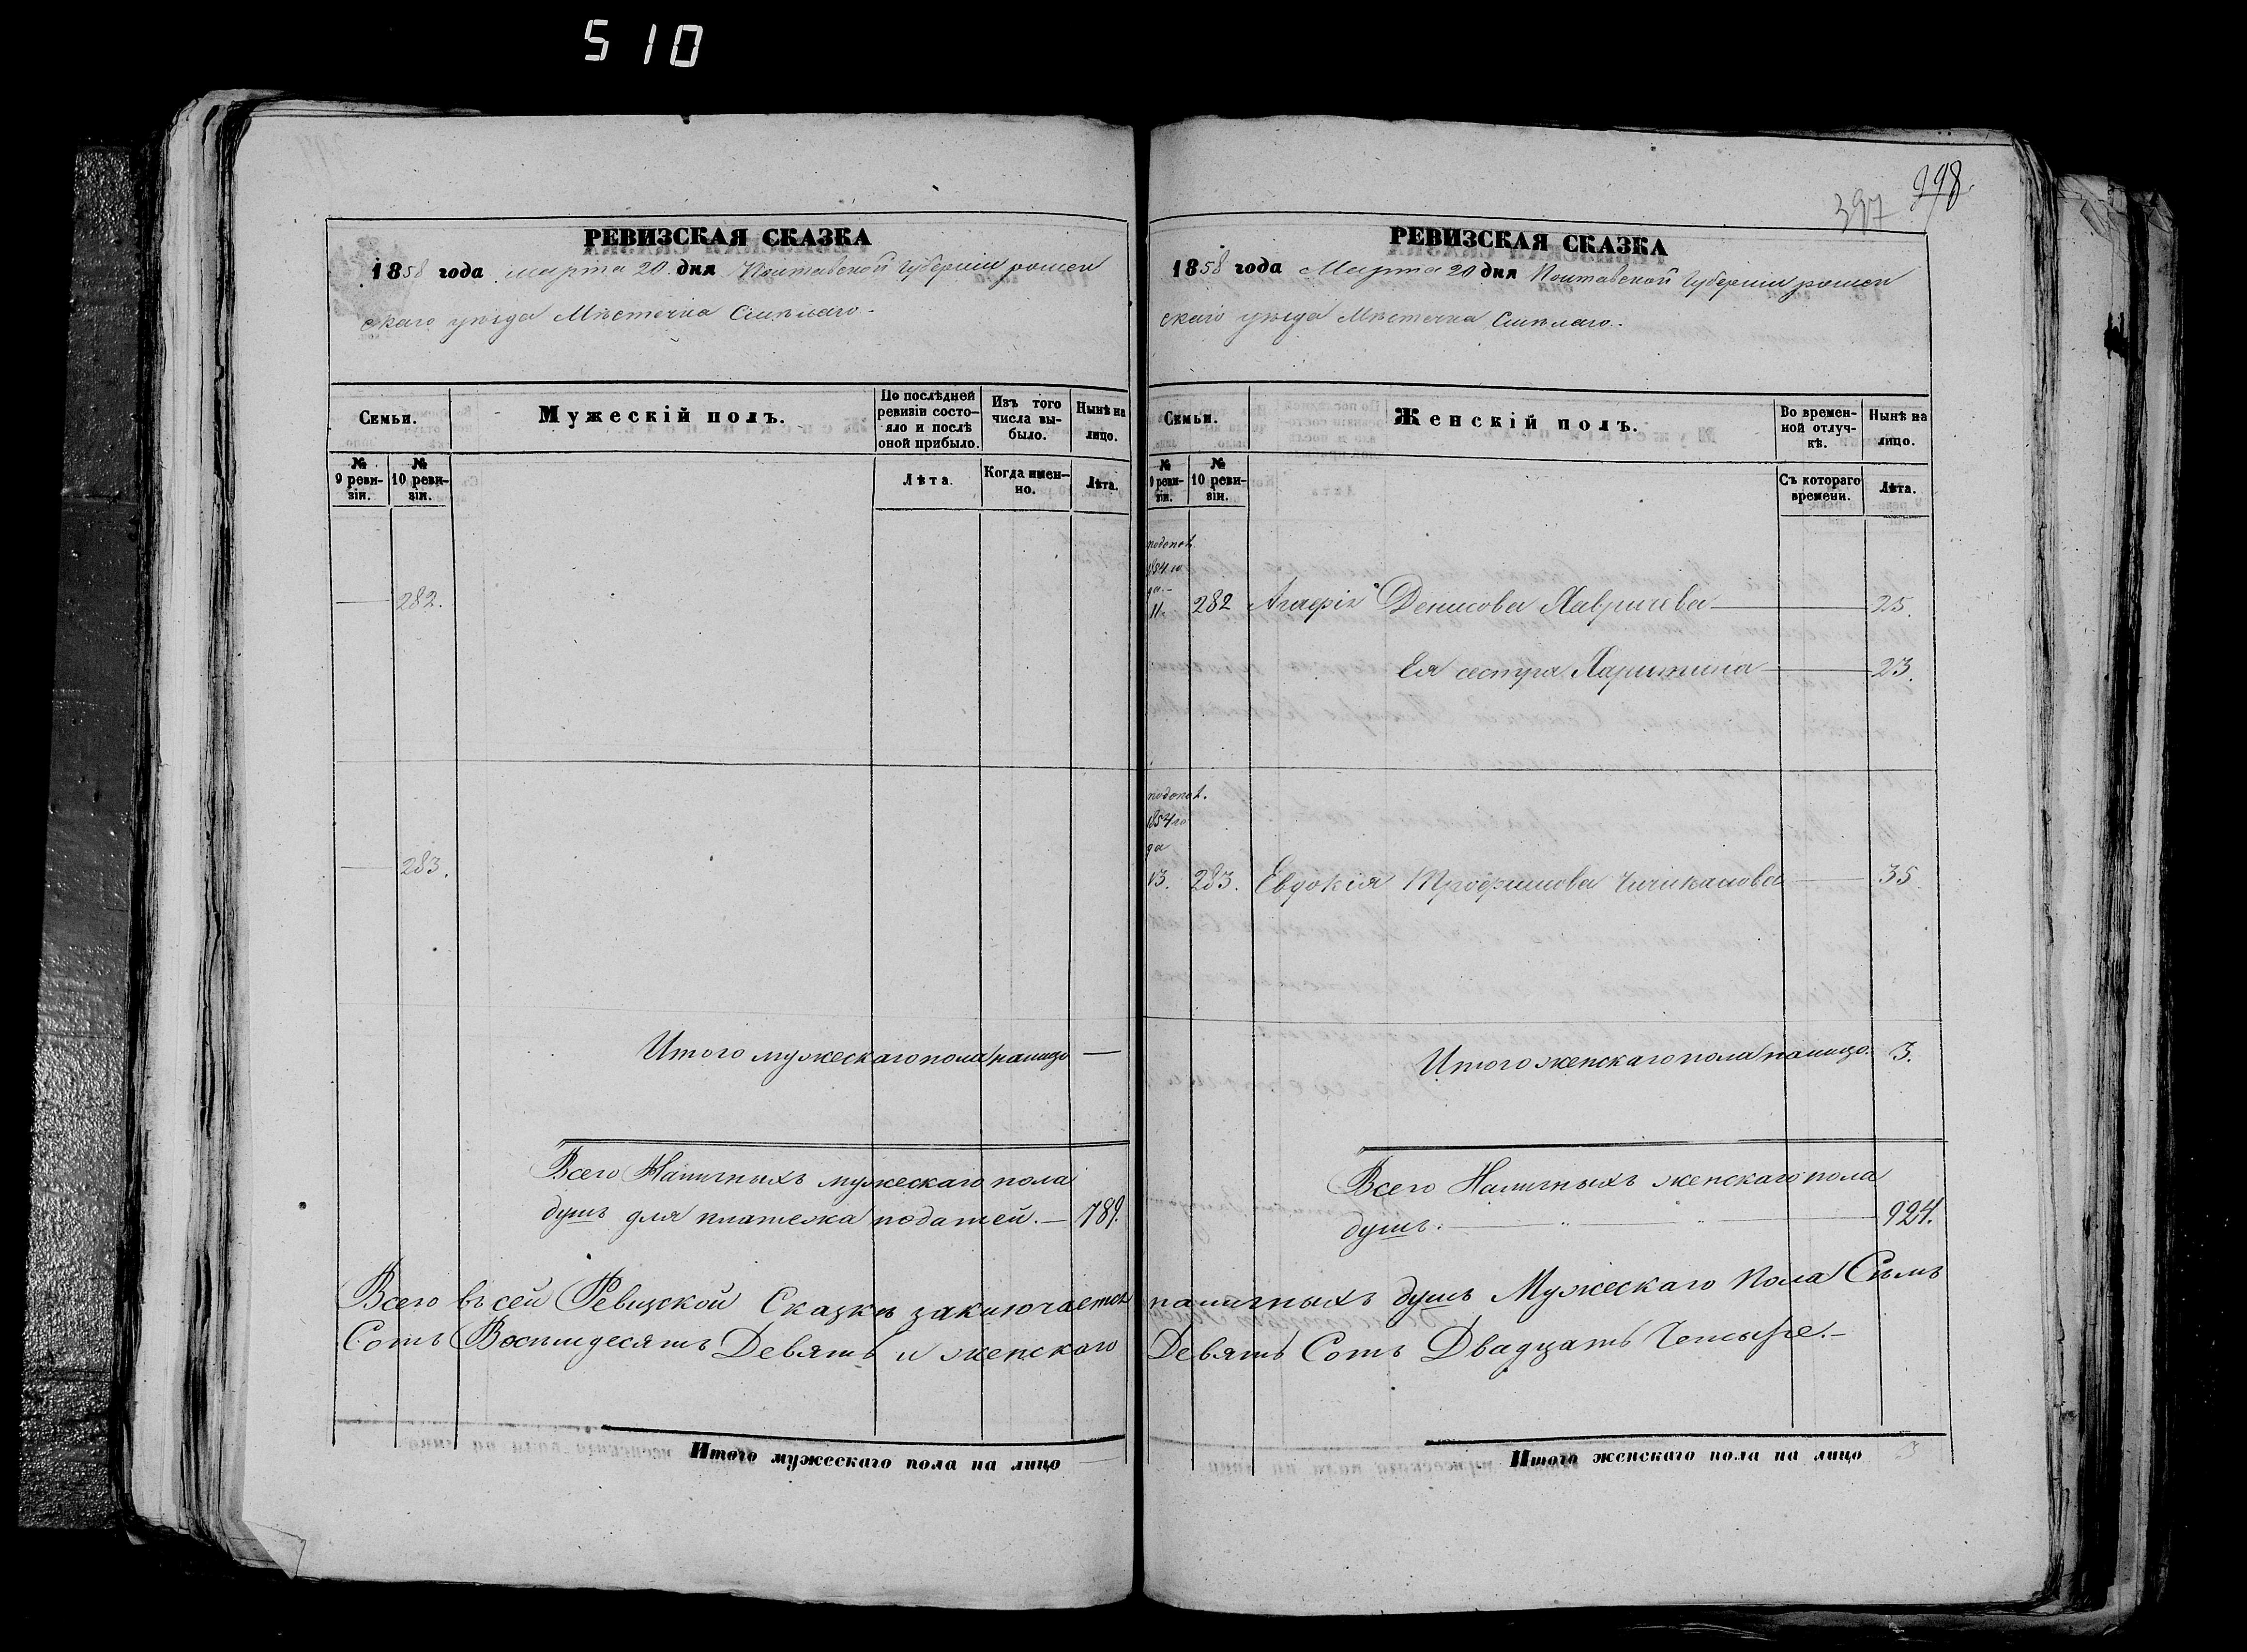 510
998.
397
РЕВИЗСКАЯ СКАЗКА
1858 года марта 20. дня Полтавской Губерніи ромен
скаго уѣзда Мѣстечка Смѣлаго.
Семьи.
Мужескій полъ.
По послѣдней ревизіи состояло и послѣ оной прибыло.
Изъ того числа выбыло.
Нынѣ на лицо.
№ 9 ревизіи.
№ 10 ревизіи.
Лѣта.
Когда именно.
Лѣта.
— 282.
— 283.
Итого мужескаго пола налицо —
Всего Наличныхъ мужескаго пола
душъ для платежа податей. — 789.
РЕВИЗСКАЯ СКАЗКА
1858 года Марта 20 дня Полтавской Губерніи ромен
скаго уѣзда Мѣстечка Смѣлаго.
Семьи.
Женскій полъ.
Во временной отлучкѣ.
Нынѣ на лицо.
№ 9 ревизіи.
№ 10 ревизіи.
Съ котораго времени.
Лѣта.
1854 го
да.
11. 282 Денисова Лавричева — 25.
Ея сестра — 23.
1854 го
да
13. 283. Евдокія Трофимова Чичиканова — 35
Итого женскаго пола налицо. 3.
Всего Наличныхъ женскаго пола
душъ. — 924.
Всего въ сей Ревизской Сказкѣ заключается наличныхъ душъ Мужескаго Пола Сѣмь
Сотъ Восемдесятъ Девять и женскаго Девять Сотъ Двадцать Четыре.—
Итого мужескаго пола на лицо —
Итого женскаго пола на лицо 3